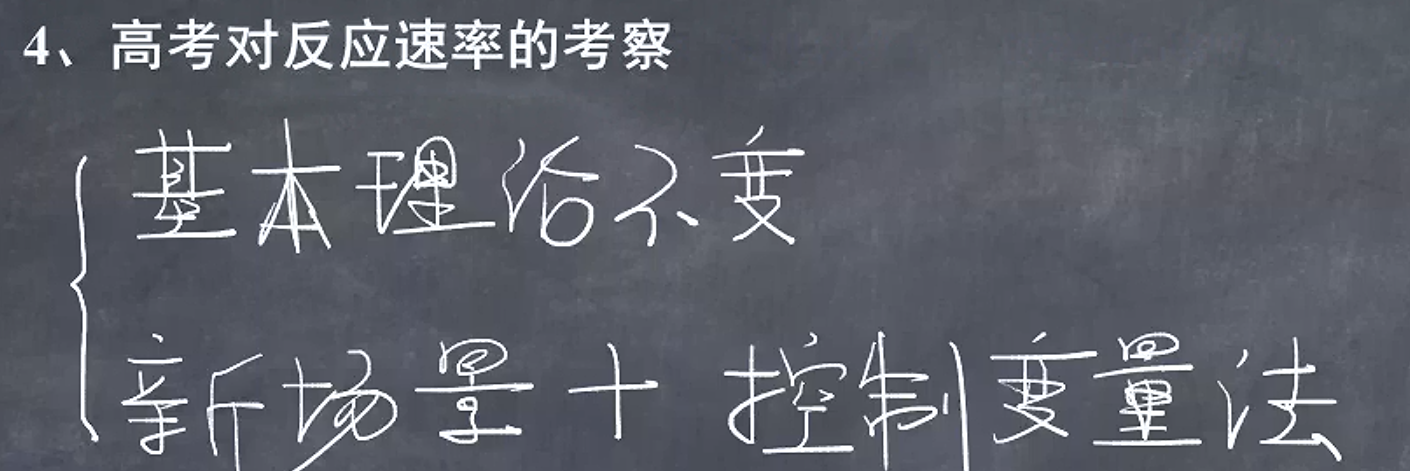 4、高考对反应速率的考察
基本理论不变
新场景+控制变量法